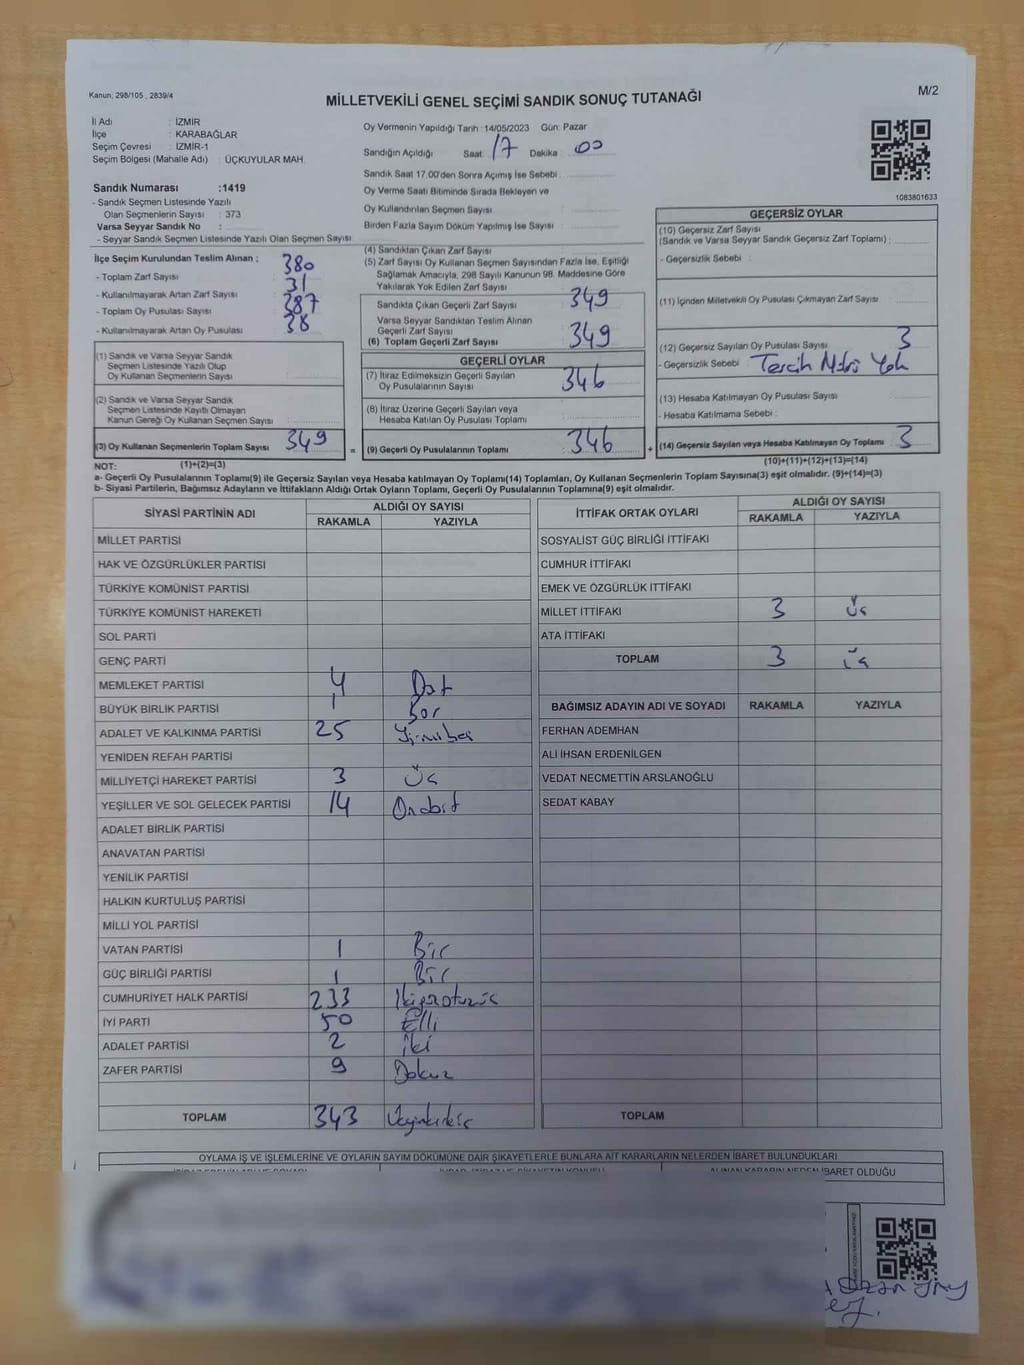 Kanun; 298/105 , 2839/4
MİLLETVEKİLİ GENEL SEÇİMİ SANDIK SONUÇ TUTANAĞI
M/2
İl Adı : İZMİR
İlçe : KARABAĞLAR
Seçim Çevresi : İZMİR-1
Seçim Bölgesi (Mahalle Adı) : ÜÇKUYULAR MAH.
Sandık Numarası :1419
- Sandık Seçmen Listesinde Yazılı
Olan Seçmenlerin Sayısı : 373
Varsa Seyyar Sandık No :
- Seyyar Sandık Seçmen Listesinde Yazılı Olan Seçmen Sayısı:
Oy Vermenin Yapıldığı Tarih :14/05/2023 Gün: Pazar
Sandığın Açıldığı Saat 17 Dakika 00
Sandık Saat 17.00'den Sonra Açımış İse Sebebi :
Oy Verme Saati Bitiminde Sırada Bekleyen ve
Oy Kullandırılan Seçmen Sayısı :
Birden Fazla Sayım Döküm Yapılmış İse Sayısı :
1083801633
İlçe Seçim Kurulundan Teslim Alınan ;
- Toplam Zarf Sayısı 380
- Kullanılmayarak Artan Zarf Sayısı 31
- Toplam Oy Pusulası Sayısı 387
- Kullanılmayarak Artan Oy Pusulası 38
(1) Sandık ve Varsa Seyyar Sandık
Seçmen Listesinde Yazılı Olup
Oy Kullanan Seçmenlerin Sayısı :
(2) Sandık ve Varsa Seyyar Sandık
Seçmen Listesinde Kayıtlı Olmayan
Kanun Gereği Oy Kullanan Seçmen Sayısı :
(3) Oy Kullanan Seçmenlerin Toplam Sayısı 349
(4) Sandıktan Çıkan Zarf Sayısı
(5) Zarf Sayısı Oy Kullanan Seçmen Sayısından Fazla İse, Eşitliği
Sağlamak Amacıyla, 298 Sayılı Kanunun 98. Maddesine Göre
Yakılarak Yok Edilen Zarf Sayısı :
Sandıkta Çıkan Geçerli Zarf Sayısı : 349
Varsa Seyyar Sandıktan Teslim Alınan
Geçerli Zarf Sayısı
(6) Toplam Geçerli Zarf Sayısı 349
GEÇERLİ OYLAR
(7) İtiraz Edilmeksizin Geçerli Sayılan
Oy Pusulalarının Sayısı : 346
(8) İtiraz Üzerine Geçerli Sayılan veya
Hesaba Katılan Oy Pusulası Toplamı
= (9) Geçerli Oy Pusulalarının Toplamı : 346 +
GEÇERSİZ OYLAR
(10) Geçersiz Zarf Sayısı
(Sandık ve Varsa Seyyar Sandık Geçersiz Zarf Toplamı) :
- Geçersizlik Sebebi :
(11) İçinden Milletvekili Oy Pusulası Çıkmayan Zarf Sayısı :
(12) Geçersiz Sayılan Oy Pusulası Sayısı 3
- Geçersizlik Sebebi : Tercih Mührü Yok
(13) Hesaba Katılmayan Oy Pusulası Sayısı
- Hesaba Katılmama Sebebi :
(14) Geçersiz Sayılan veya Hesaba Katılmayan Oy Toplamı 3
NOT: (1)+(2)=(3)
(10)+(11)+(12)+(13)=(14)
a- Geçerli Oy Pusulalarının Toplamı(9) ile Geçersiz Sayılan veya Hesaba katılmayan Oy Toplamı(14) Toplamları, Oy Kullanan Seçmenlerin Toplam Sayısına(3) eşit olmalıdır. (9)+(14)=(3)
b- Siyasi Partilerin, Bağımsız Adayların ve İttifakların Aldığı Ortak Oyların Toplamı, Geçerli Oy Pusulalarının Toplamına(9) eşit olmalıdır.
SİYASİ PARTİNİN ADI ALDIĞI OY SAYISI
RAKAMLA YAZIYLA
MİLLET PARTİSİ
HAK VE ÖZGÜRLÜKLER PARTİSİ
TÜRKİYE KOMÜNİST PARTİSİ
TÜRKİYE KOMÜNİST HAREKETİ
SOL PARTİ
GENÇ PARTİ
MEMLEKET PARTİSİ 4 Dört
BÜYÜK BİRLİK PARTİSİ 1 Bir
ADALET VE KALKINMA PARTİSİ 25 Yirmibeş
YENİDEN REFAH PARTİSİ
MİLLİYETÇİ HAREKET PARTİSİ 3 Üç
YEŞİLLER VE SOL GELECEK PARTİSİ 14 Ondört
ADALET BİRLİK PARTİSİ
ANAVATAN PARTİSİ
YENİLİK PARTİSİ
HALKIN KURTULUŞ PARTİSİ
MİLLİ YOL PARTİSİ
VATAN PARTİSİ 1 Bir
GÜÇ BİRLİĞİ PARTİSİ 1 Bir
CUMHURİYET HALK PARTİSİ 233 İkiyüzotuzüç
İYİ PARTİ 50 Elli
ADALET PARTİSİ 2 İki
ZAFER PARTİSİ 9 Dokuz
TOPLAM 343 Üçyüzkırküç
İTTİFAK ORTAK OYLARI ALDIĞI OY SAYISI
RAKAMLA YAZIYLA
SOSYALİST GÜÇ BİRLİĞİ İTTİFAKI
CUMHUR İTTİFAKI
EMEK VE ÖZGÜRLÜK İTTİFAKI
MİLLET İTTİFAKI 3 Üç
ATA İTTİFAKI
TOPLAM 3 Üç
BAĞIMSIZ ADAYIN ADI VE SOYADI RAKAMLA YAZIYLA
FERHAN ADEMHAN
ALİ İHSAN ERDENİLGEN
VEDAT NECMETTİN ARSLANOĞLU
SEDAT KABAY
TOPLAM
OYLAMA İŞ VE İŞLEMLERİNE VE OYLARIN SAYIM DÖKÜMÜNE DAİR ŞİKAYETLERLE BUNLARA AİT KARARLARIN NELERDEN İBARET BULUNDUKLARI
ALINAN KARARIN NEDEN İBARET OLDUĞU